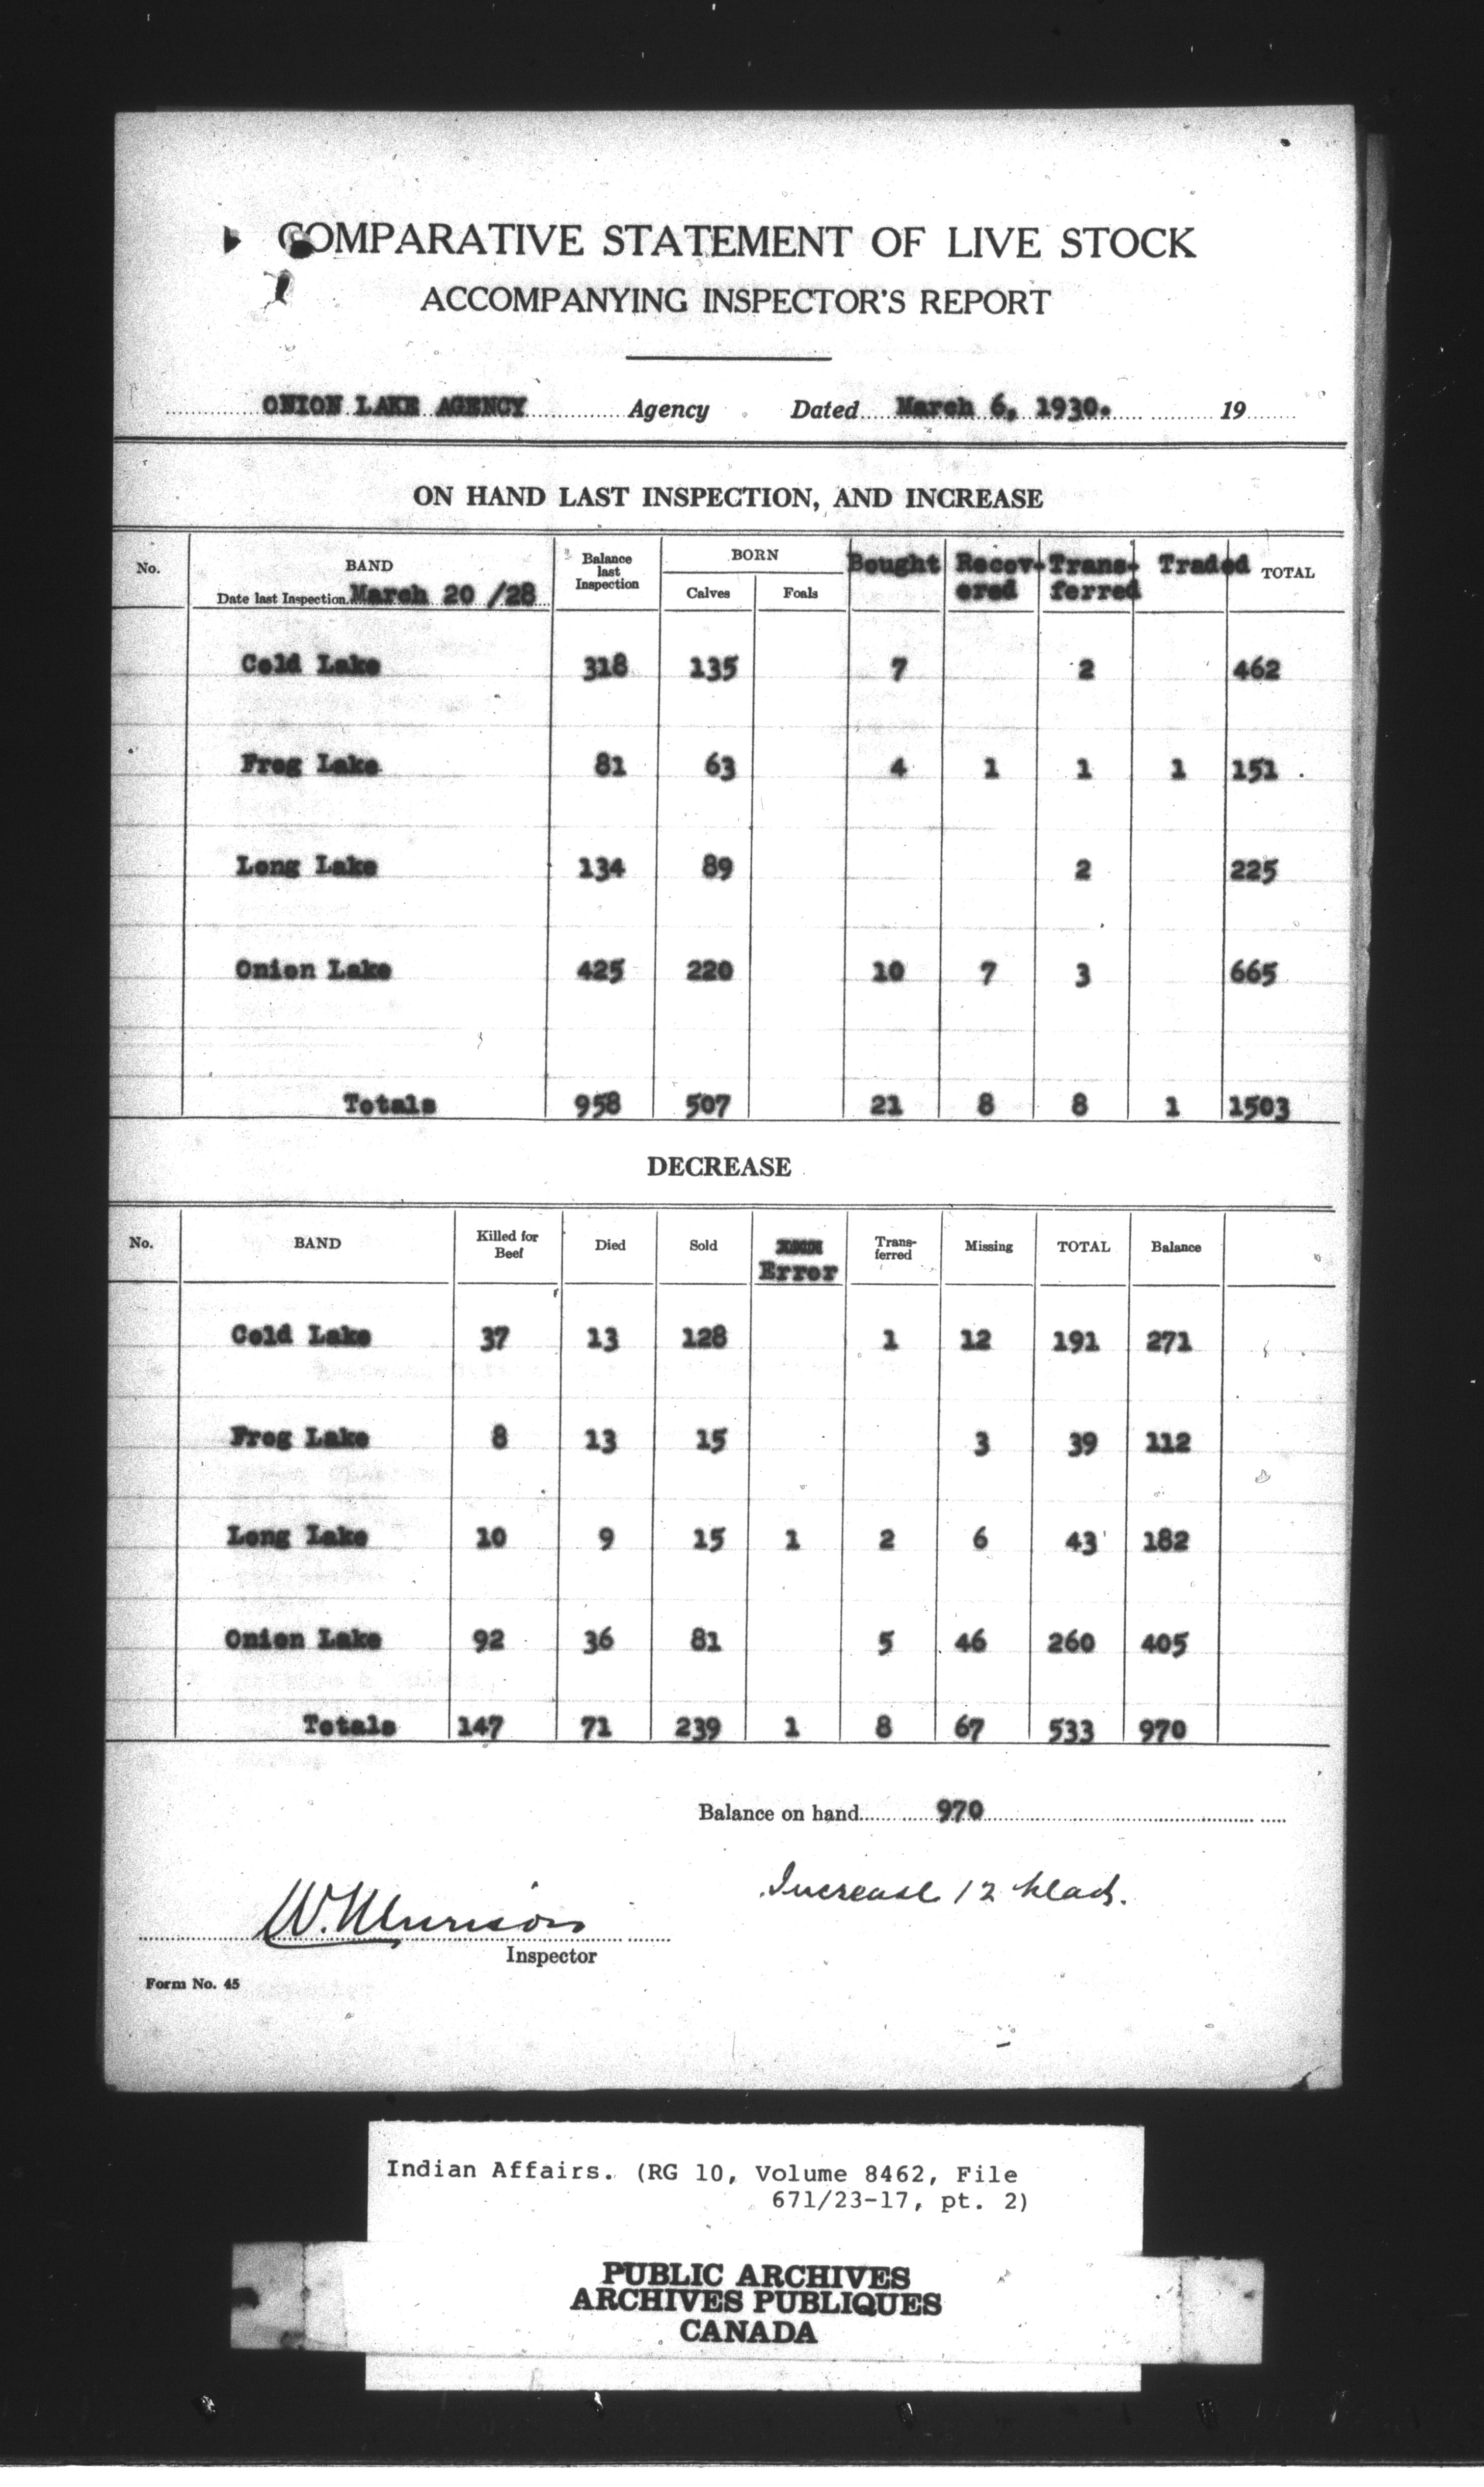 COMPARATIVE STATEMENT OF LIVE STOCK
ACCOMPANYING INSPECTOR'S REPORT
ONION LAKE AGENCY Agency Dated March 6, 1930. 19
ON HAND LAST INSPECTION, AND INCREASE
No. BAND Date last Inspection March 20 /28 Balance last Inspection BORN Calves Foals Bought Recov-ered Trans-ferred Traded TOTAL
Cold Lake 318 135 7 2 462
Frog Lake 81 63 4 1 1 1 151
Long Lake 134 89 2 225
Onion Lake 425 220 10 7 3 665
Totals 958 507 21 8 8 1 1503
DECREASE
No. BAND Killed for Beef Died Sold Error Trans-ferred Missing TOTAL Balance
Cold Lake 37 13 128 1 12 191 271
Frog Lake 8 13 15 3 39 112
Long Lake 10 9 15 1 2 6 43 182
Onion Lake 92 36 81 5 46 260 405
Totals 147 71 239 1 8 67 533 970
Balance on hand 970
Increase 12 head.
W. Murison
Inspector
Form No. 45
Indian Affairs. (RG 10, Volume 8462, File
671/23-17, pt. 2)
PUBLIC ARCHIVES
ARCHIVES PUBLIQUES
CANADA